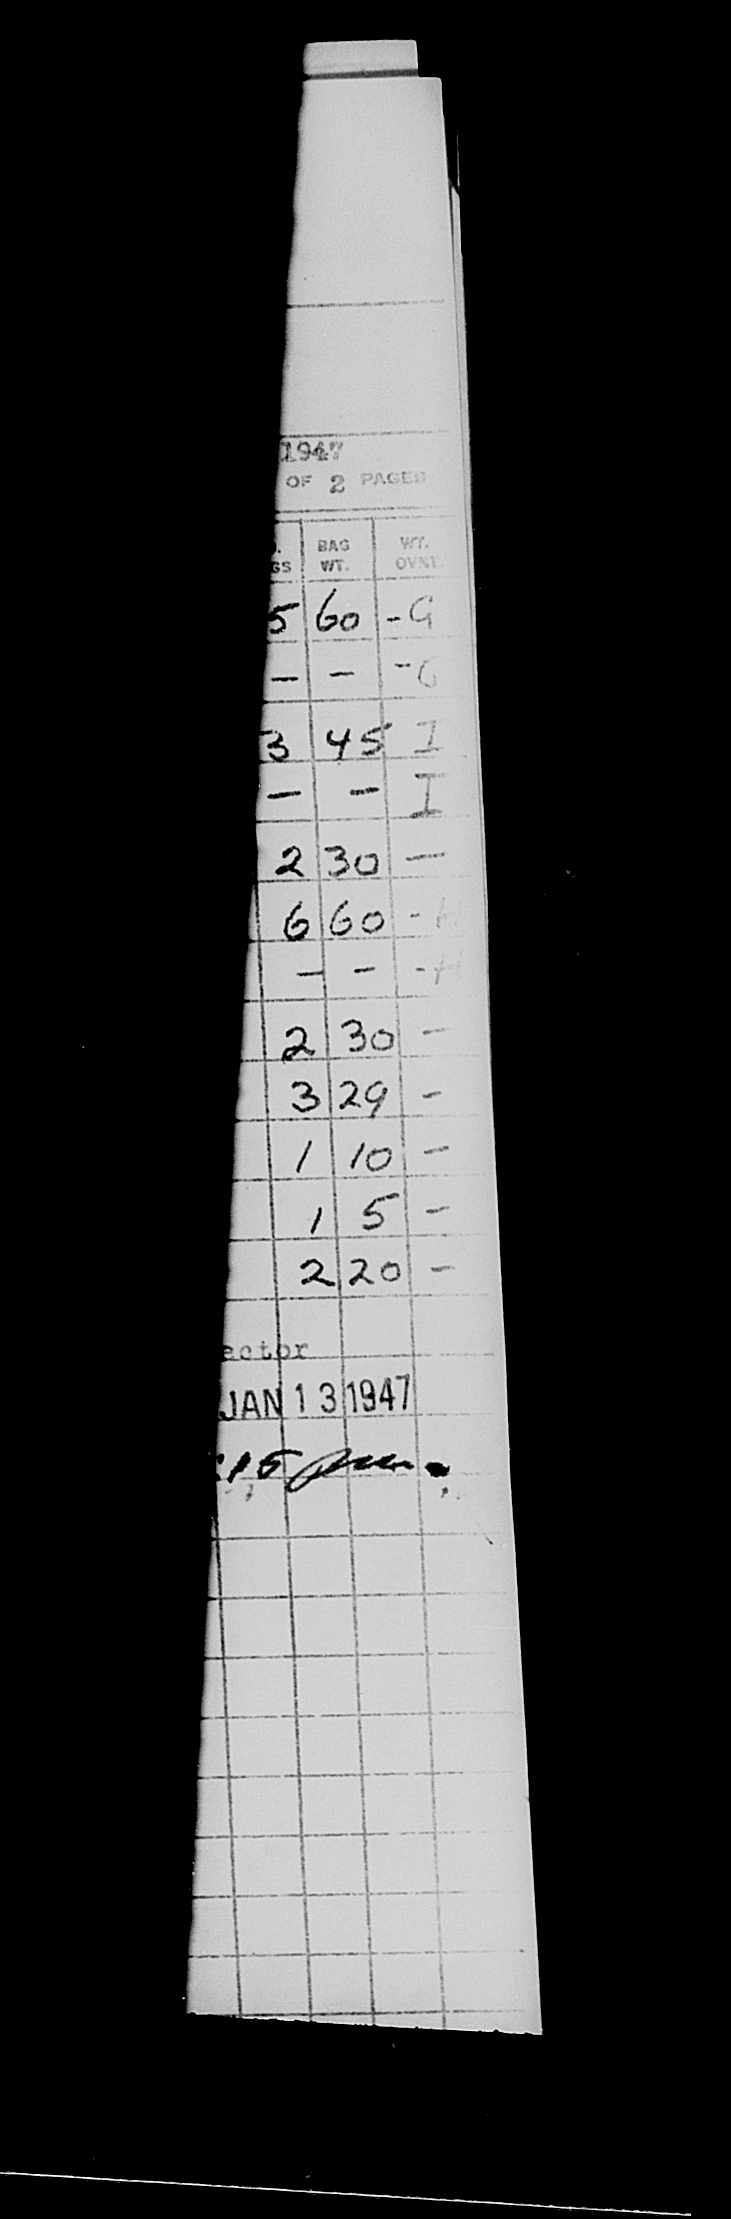 1947
OF 2 PAGES
. BAG WT.
GS WT. OVNT.
5 60 - G
- - - G
3 45 I
- - I
2 30 -
6 60 - H
- - - H
2 30 -
3 29 -
1 10 -
1 5 -
2 20 -
ector
JAN 13 1947